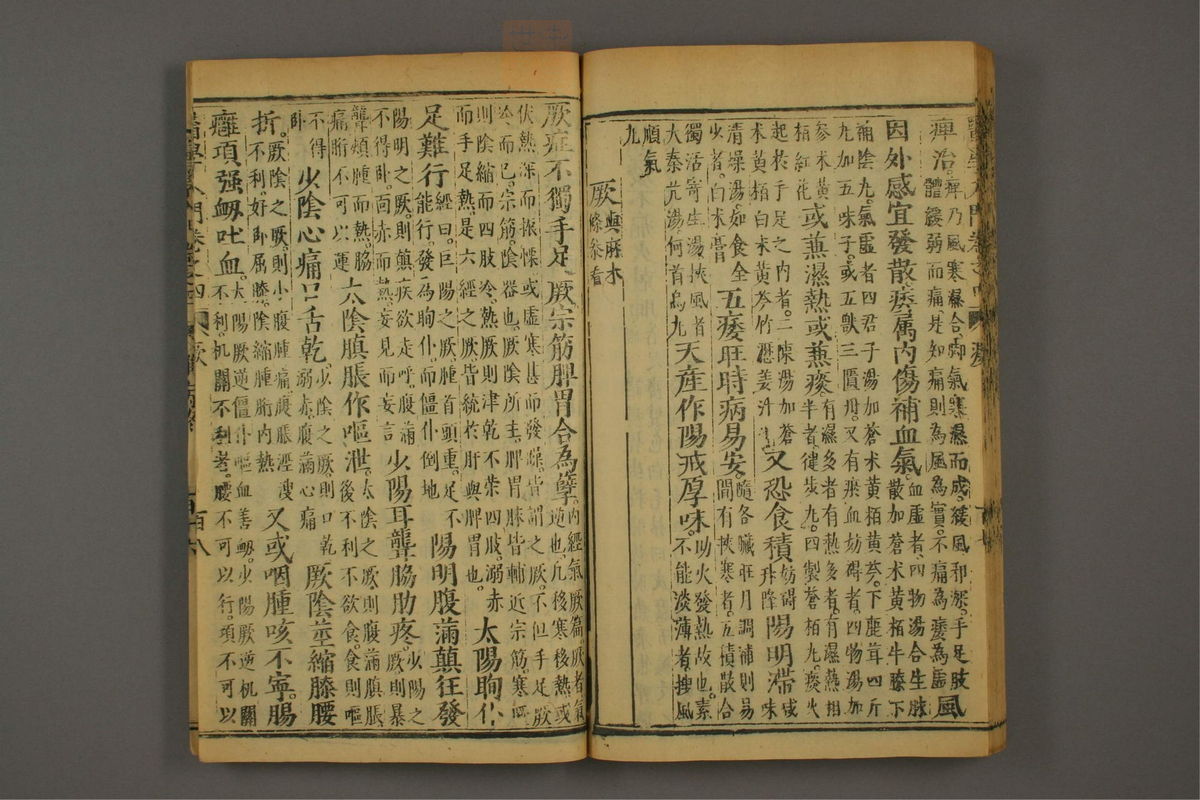 痺治。痺乃風寒濕合。脚氣寒濕而成。痿風邪深。手足肢
體緩弱而痛。是知痛則為風為實。不痛為痿為虛
風
因外感宜發散痿属内傷補血氣。血虛者。四物湯合生脉
散加蒼术黄栢牛膝下
補陰丸。氣虛者四君子湯加蒼术黄栢黄芩。下鹿茸四斤
丸加五味子。或五獸三匱丹。又有瘀血妨碍者。四物湯加
參术黄
梔紅花
或兼濕熱或兼痰。
有濕多者有熱多者。有濕熱相
半者。健步丸。四製蒼栢丸。痰火
起於手足之内者。二陳湯加蒼
术黄栢白术黄芩竹瀝姜汁
又恐食積
妨碍
升降
陽明滞
味
清燥湯。如食全
少者。白术膏
五痿旺時病易安。
隨各臟旺月調補則易
間有挾寒者。五積散合
獨活寄生湯。挾風者
大秦艽湯。何首烏丸
天產作陽戒厚味。
助火發熱故也。素
不能淡薄者。搜風
順氣
丸
厥
與麻木
條叅看
厥症不獨手足厥。宗筋脾胃合為孽。
内經氣厥篇。厥者氣
逆也。凡移寒移熱。或
伏熱深而振慄。或虛寒甚而發燥。皆謂之厥。不但手足厥
冷而已。宗筋。陰器也。厥陰所主。脾胃脉皆輔近宗筋。寒厥
則陰縮而四肢冷。熱厥則津乾不荣四肢。溺赤
而手足熱。是六經之厥。皆統於肝與脾胃也。
太陽眴仆
足難行
經曰。巨陽之厥。首頭重。足不
能行。發為眴仆。而僵仆倒地
陽明腹滿癲狂發
陽明之厥。則癲疾欲走呼。腹滿
不得卧。面赤而熱。妄見而妄言
少陽耳聾脇肋疼。
少陽之
厥則暴
聾頰腫而熱。脇
痛䯒不可以運
太陰䐜脹作嘔泄。
太陰之厥。則腹滿䐜脹
後不利。不欲食。食則嘔
不得
卧
少陰心痛口舌乾。
少陰之厥。則口乾
溺赤。腹滿心痛
厥陰莖縮膝腰
折。
厥陰之厥。則小腹腫痛。腹脹。涇溲
不利。好卧屈膝。陰縮腫。䯒内熱
又或咽腫咳不寧。腸
癰項强衂吐血。
太陽厥逆。僵仆嘔血善衂。少陽厥逆。机關
不利。机關不利者。腰不可以行。項不可以